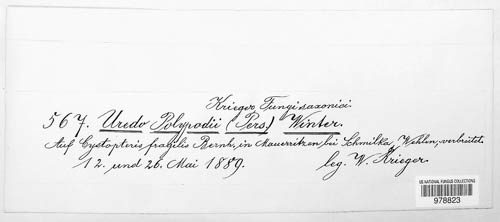 Krieger, Fungi saxonici
567. Uredo Polypodii (Pers) Winter.
Auf Cystopteris fragilis Bernh, in Mauerritzen bei Schmilka, Wehlen, verbreitet.
12. und 26. Mai 1889. leg. W. Krieger.
US NATIONAL FUNGUS COLLECTIONS
978823